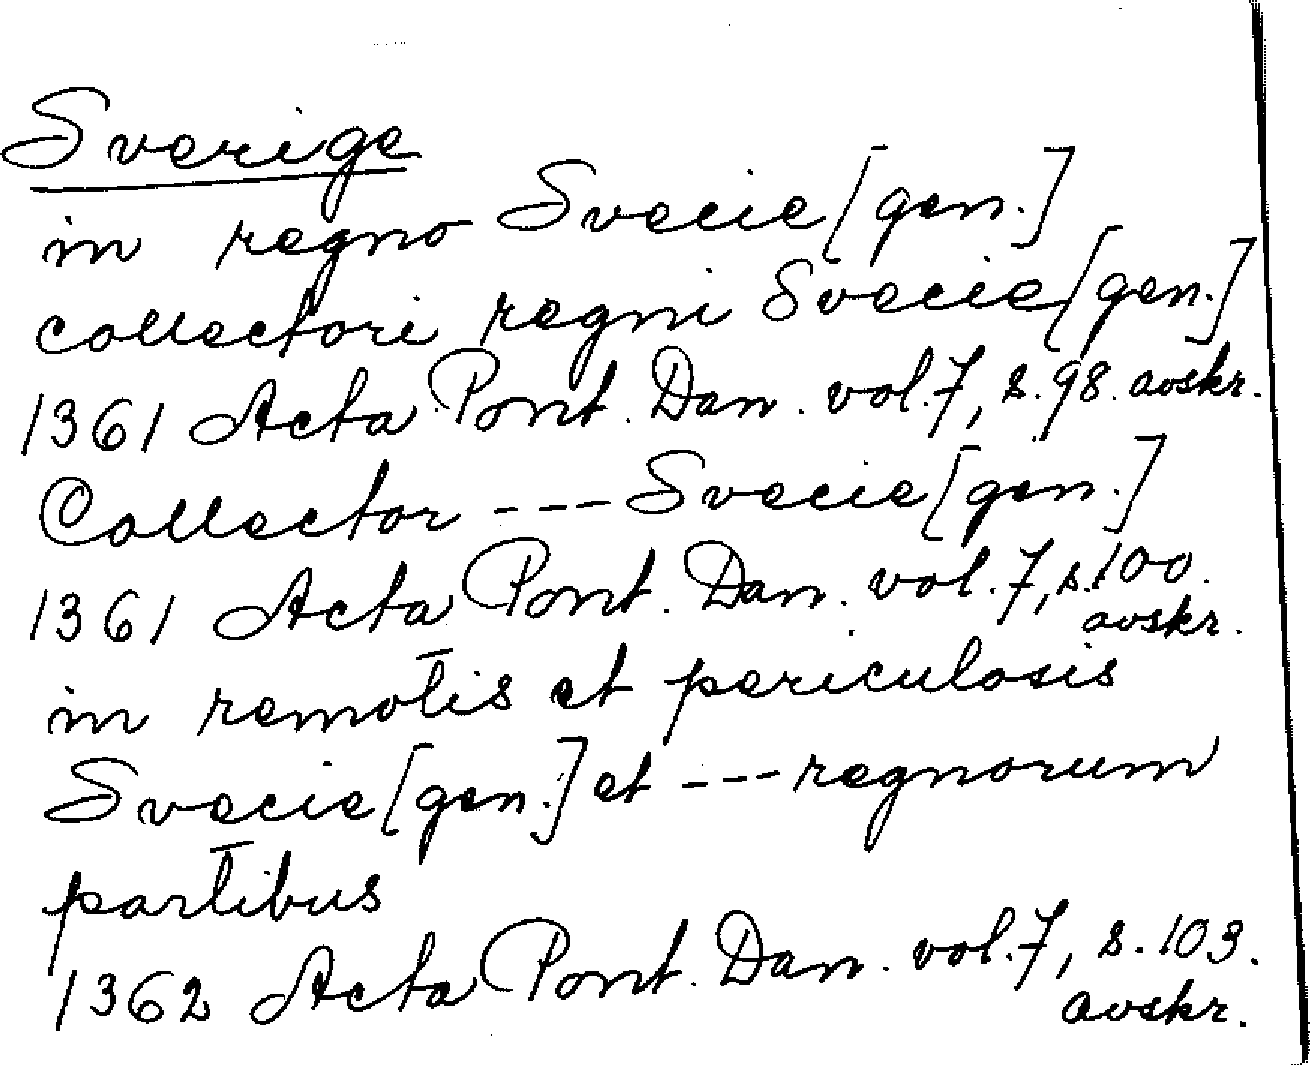 Sverige
in regno Svecie [gen.]
collectori regni Svecie [gen.]
1361 Acta Pont. Dan. vol. 7, s. 98. avskr.
Collector --- Svecie [gen.]
1361 Acta Pont. Dan. vol. 7, s. 100.
avskr.
in remotis et periculosis
Svecie [gen.] et --- regnorum
partibus
1362 Acta Pont. Dan. vol. 7, s. 103.
avskr.